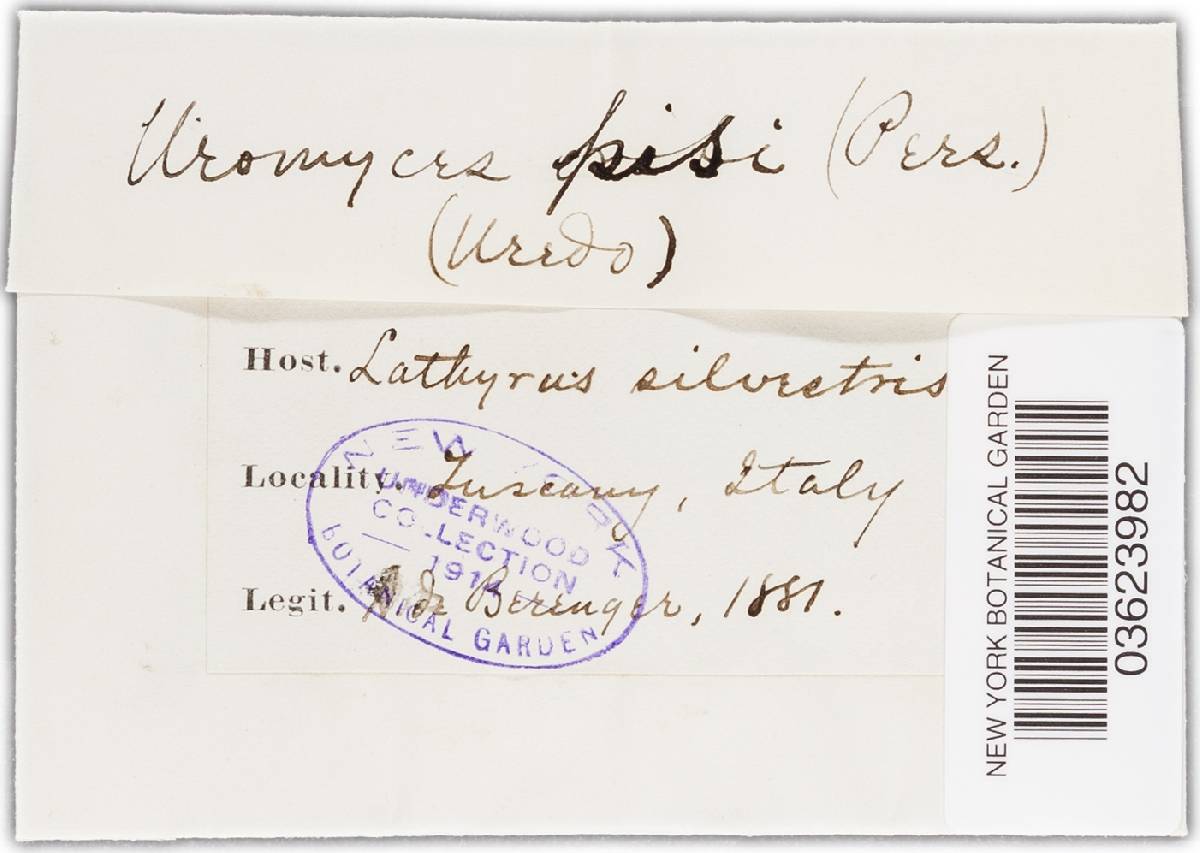 Uromyces pisi (Pers.)
(Uredo)
Host. Lathyrus silvestris
Locality. Tuscany, Italy
Legit. de Berenger, 1881.
NEW YORK
UNDERWOOD
COLLECTION
BOTANICAL GARDEN
NEW YORK BOTANICAL GARDEN
03623982